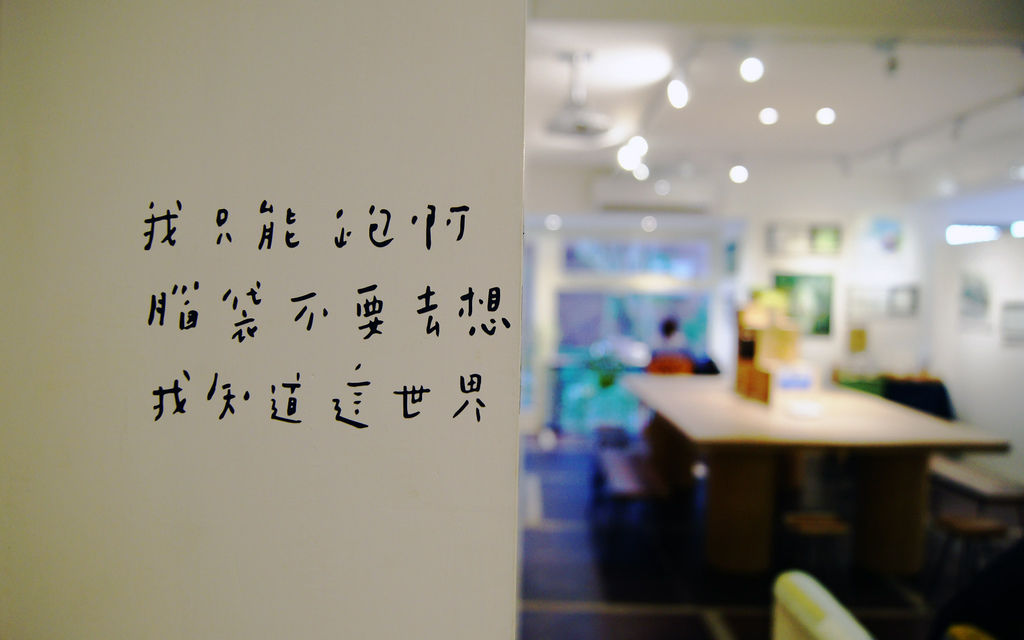 我只能跑啊
腦袋不要去想
我知道這世界